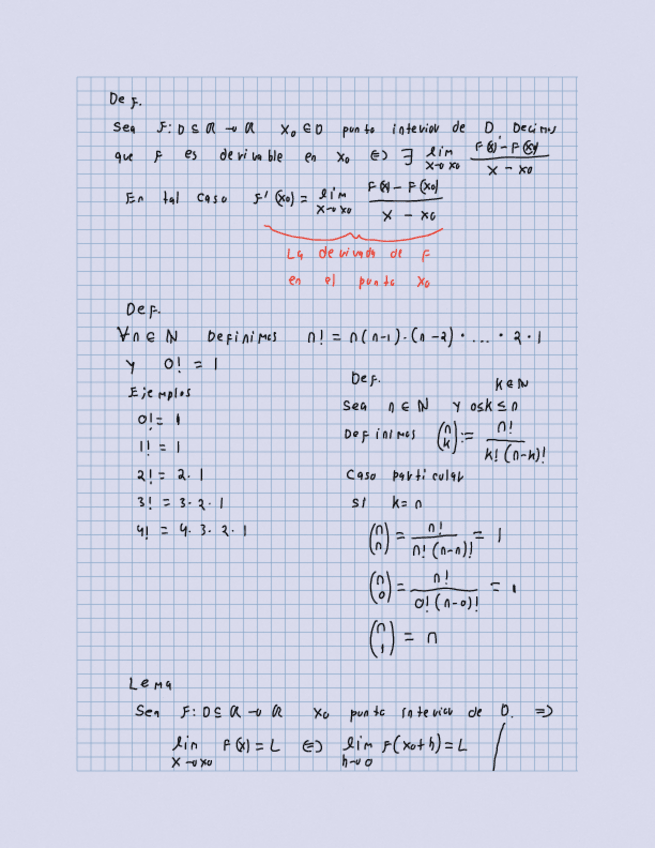 Def.
Sea F: D ⊆ ℝ → ℝ x₀ ∈ D punto interior de D. Decimos
que F es derivable en x₀ ⇔ ∃ lim_{x→x₀} (F(x) − F(x₀)) / (x − x₀)
En tal caso F'(x₀) = lim_{x→x₀} (F(x) − F(x₀)) / (x − x₀)
La derivada de F
en el punto x₀
Def.
∀n ∈ ℕ Definimos n! = n(n−1)·(n−2)· ... · 2 · 1
y 0! = 1
Ejemplos
0! = 1
1! = 1
2! = 2 · 1
3! = 3 · 2 · 1
4! = 4 · 3 · 2 · 1
Def.
k ∈ ℕ
Sea n ∈ ℕ y 0≤k≤n
Definimos (n k) := n! / (k!(n−k)!)
Caso particular
si k = n
(n n) = n! / (n!(n−n)!) = 1
(n 0) = n! / (0!(n−0)!) = 1
(n 1) = n
Lema
Sea F: D ⊆ ℝ → ℝ x₀ punto interior de D. ⇒
lim_{x→x₀} F(x) = L ⇔ lim_{h→0} F(x₀+h) = L